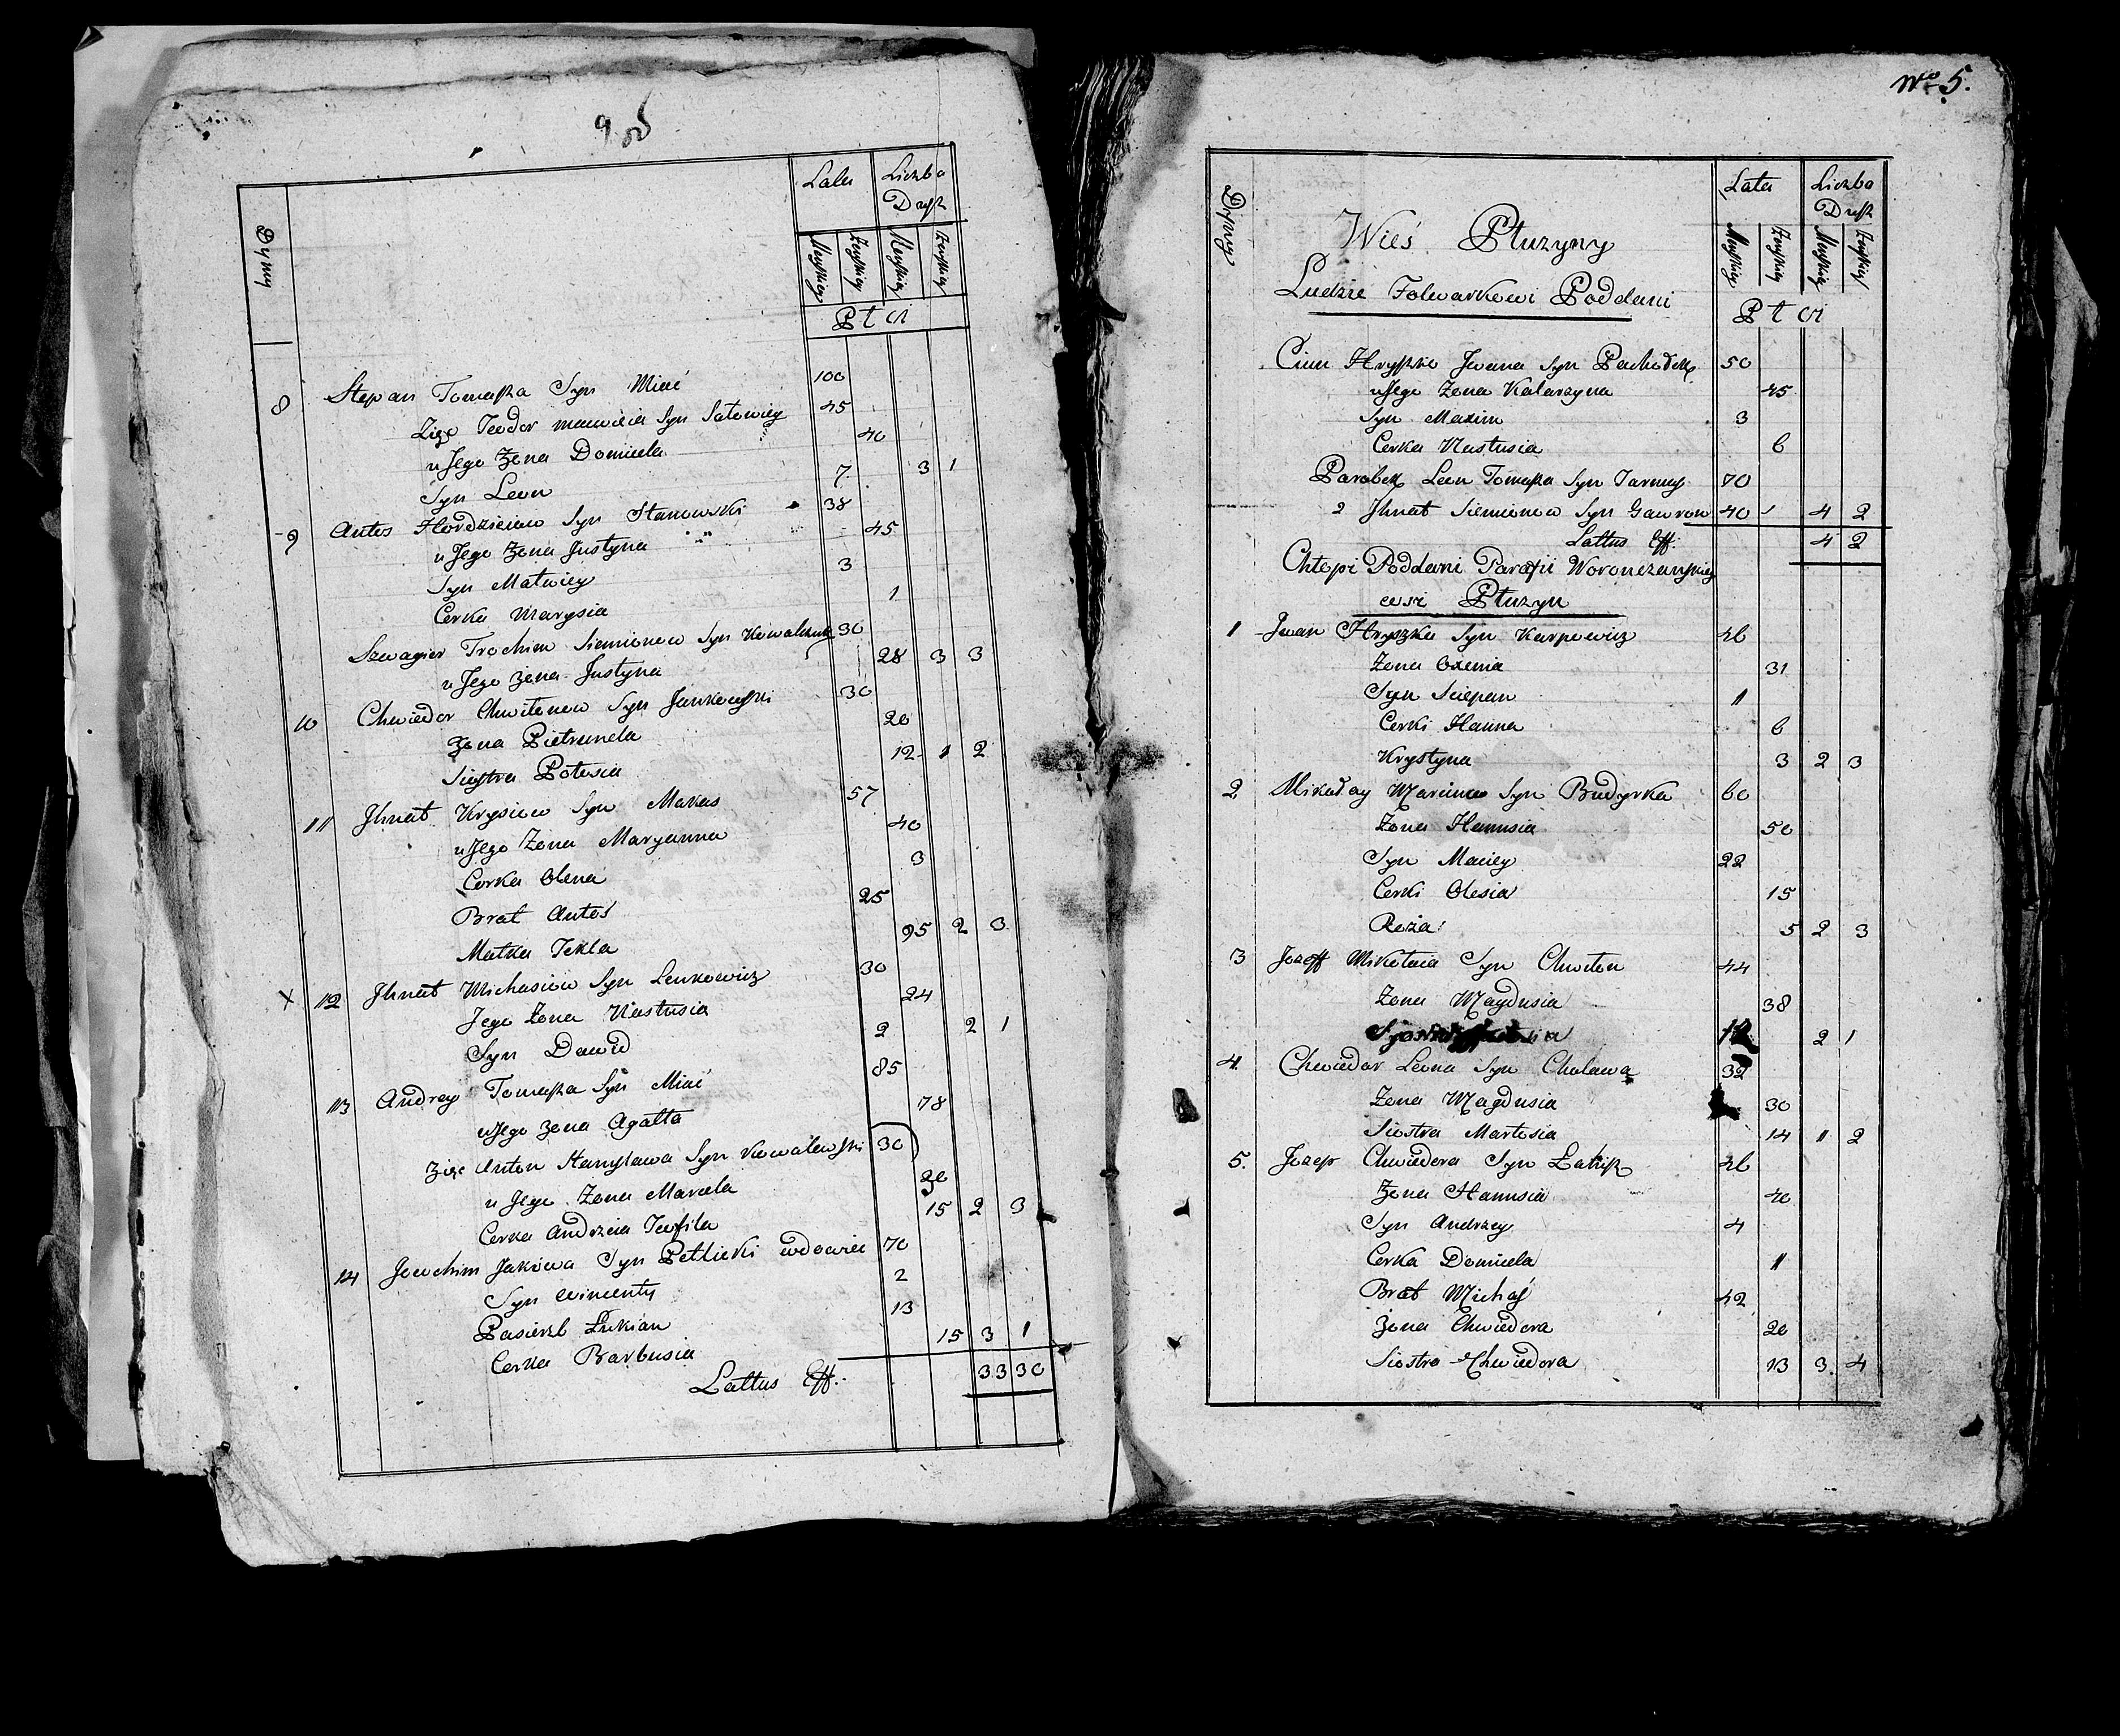 Dymy
Lata Liczba
Dusz
Męskiey Żeńskiey Męskiey Żeńskiey
Płci
8 Stepan Tomasza Syn Mić 100
Zięć Teodor Syn 45
u Jego Żona Domicela 40
Syn Leon 7 3 1
9 Antos Hordzieiow Syn Stanowski 38
u Jego Żona Justyna 45
Syn Matwiey 3
Cerka Marysia 1
Szwagier Trochim Siemionow Syn Kowalczuk 30
u Jego Żona Justyna 28 3 3
10 Chwiedor Chwitonow Syn Jankowski 30
Żona Pietrunela 20
Siostra Polusia 12 1 2
11 Jhnat Krysiow Syn Makas 57
u Jego Żona Maryanna 40
Cerka Olena 3
Brat Antoś 25
Matka Tekla 95 2 3
X 12 Jhnat Michasiow Syn Lenkowicz 30
Jego Żona Nastusia 24
Syn Dawid 2 2 1
13 Andrey Tomasza Syn Mić 85
u Jego Żona Agatta 78
Zięć Anton Stanysława Syn Kowalewski 30
u Jego Żona Marcela 30
Cerka Andrzeia Teofila 15 2 3
14 Jowchim Jakowa Syn Petlicki wdowiec 70
Syn Wincenty 2
Pasierb Łukian 13
Cerka Barbusia 15 3 1
Lattus Eff: 33 30
No 5.
Dymy
Lata Liczba
Dusz
Męskiey Żeńskiey Męskiey Żeńskiey
Płci
Wieś Płużyny
Ludzie Folwarkowi Poddani
Ciwun Hryszko Jwana Syn 50
u Jego Żona Katarzyna 45
Syn Maxim 3
Cerka Nastusia 6
Parobek Leon Tomasza Syn Jarmoy 70
2 Jhnat Siemionow Syn Gawron 40 1 4 2
Lattus Eff: 4 2
Chłopi Poddani Parafii Woronczańskiey
wsi Płużyn
1 Jwan Hryszka Syn Karpowicz 46
Żona Oxenia 31
Syn Sciepan 1
Cerki Hanna 6
Krystyna 3 2 3
2 Mikołay Marcina Syn Budyrka 60
Żona Hanusia 50
Syn Maciey 22
Cerki Olesia 15
Roża 5 2 3
3 Jozeff Mikołaia Syn Chwiton 44
Żona Magdusia 38
2 1
4. Chwiedor Leona Syn Cholawa 32
Żona Magdusia 30
Siostra Martosia 14 1 2
5. Jozep Chwiedora Syn Łatysz 46
Żona Hanusia 40
Syn Andrzey 4
Cerka Domicela 1
Brat Michaś 42
Żona Chwiedora 20
Siostra Chwiedora 13 3. 4